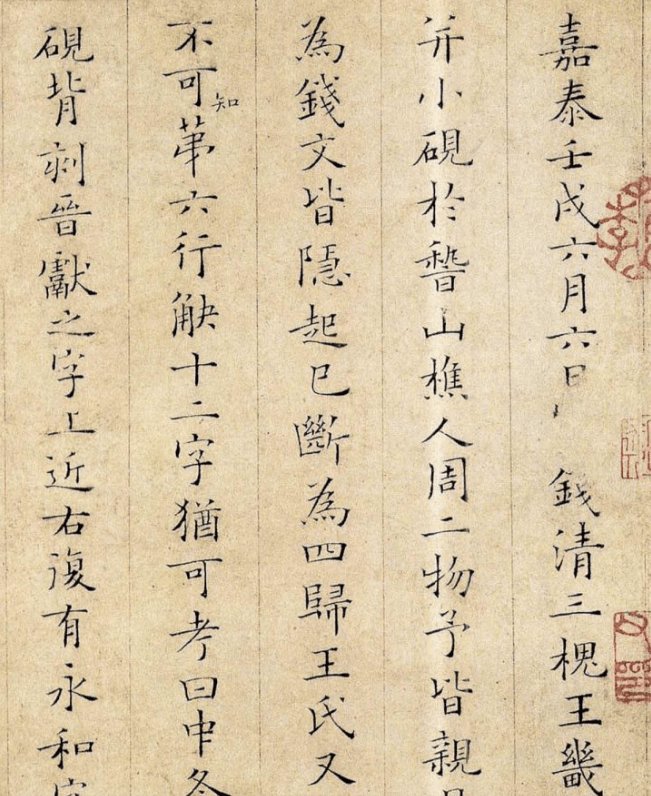 嘉泰壬戌六月六日 錢清三槐王畿
并小硯於嵇山樵人周二物予皆親
為錢文皆隱起已斷為四歸王氏又
不可知第六行缺十二字猶可考曰中冬
硯背刻晉獻之字上近右復有永和